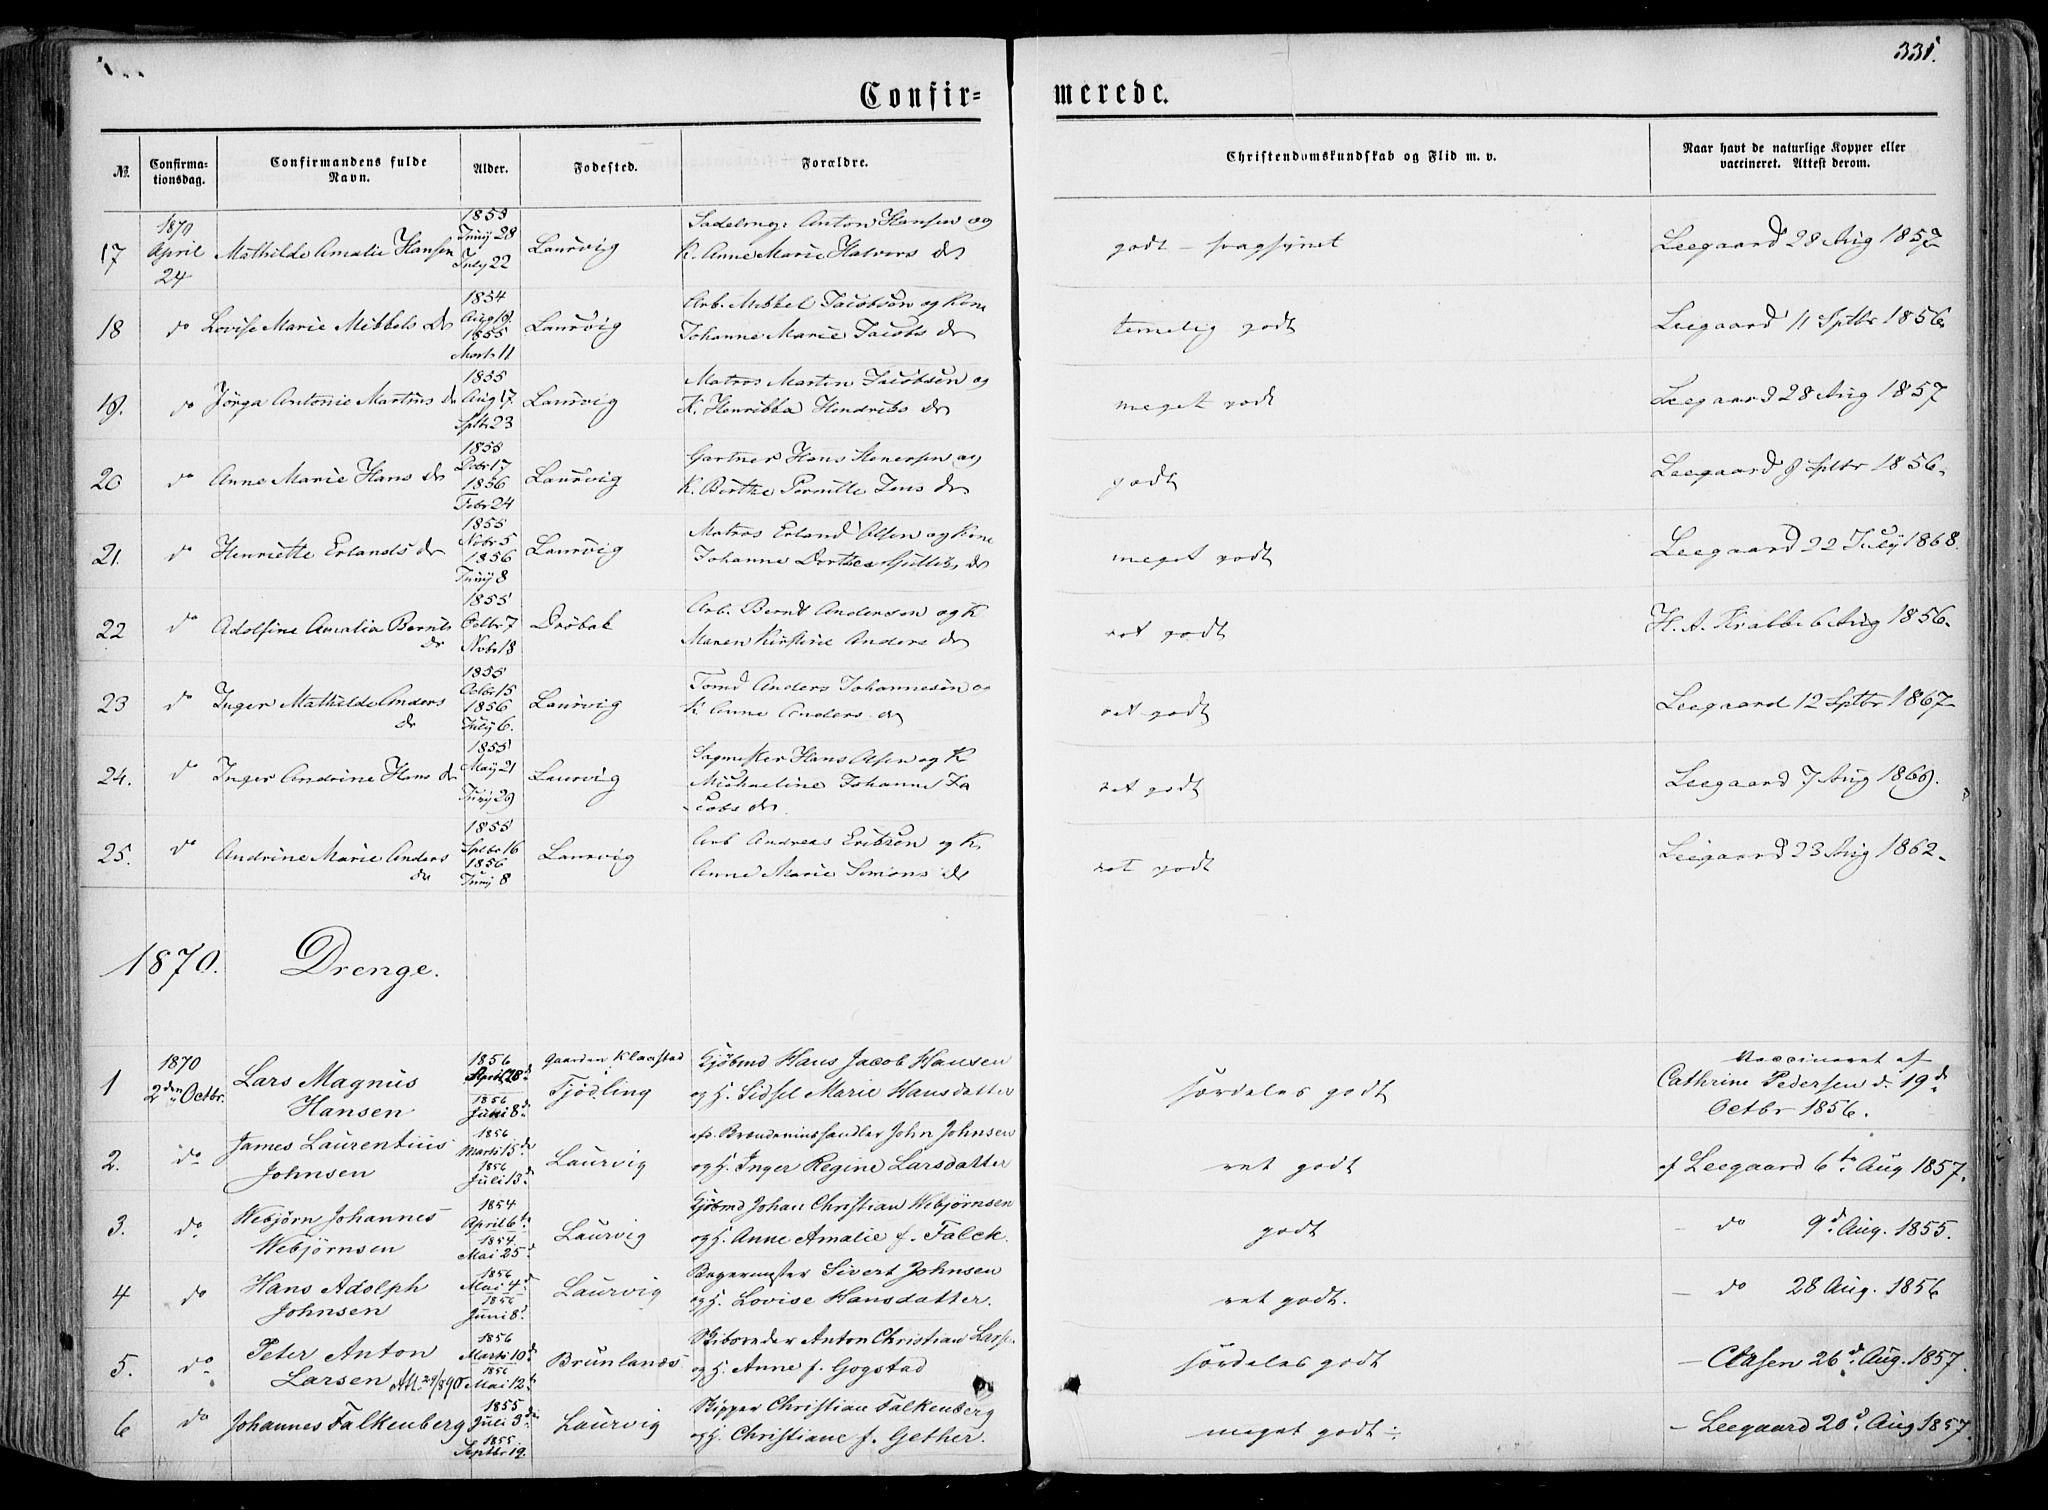 331.
Confir- merede.
No. Confirma-tionsdag. Confirmandens fulde Navn. Alder. Fødested. Forældre. Christendomskundskab og Flid m. v. Naar havt de naturlige Kopper eller vaccineret. Attest derom.
17 1870 April 24 Mathilde Amalie Hansen 1855 Juny 28 July 22 Laurvig Anton Hansen og K. Anne Marie Halvors dr godt - svagsynet Leegaard 28 Aug 1857
18 do Lovise Marie Mikkels dr 1854 Aug 19. 1855 Marts 11 Laurvig Arb. Mikkel Jacobsen og Kone Johanne Marie Jacobs dr temelig godt Leegaard 11 Sptbr 1856
19. do Jörga Antonie Martins dr 1855 Aug 17 Sptbr 23 Laurvig Matros Martin Jacobsen og K. Henrikka Hendriks dr meget godt Leegaard 28 Aug 1857
20 do Anne Marie Hans dr 1855 Dcbr 17 1856 Febr 24 Laurvig Gartner Hans Stenersen og K. Berthe Pernille Jens dr godt Leegaard 8 Sptbr 1856.
21. do Henriette Erlands dr 1855 Novbr 5 1856 Juny 8 Laurvig Matros Erland Olsen og Kone Johanne Dorthea dr meget godt Leegaard 22 July 1868.
22 do Adolfine Amalia Bernts dr 1855 Octbr 7 Nvbr 18 Dröbak Arb. Bernt Andersen og K Maren Kirstine Anders dr ret godt H. A. Krabbe 6 Aug 1856.
23 do Inger Mathilde Anders dr 1855 Octbr 15 1856 July 6. Laurvig Tomd Anders Johannesen og K Anne Anders dr ret godt Leegaard 12 Sptbr 1867
24. do Inger Andrine Hans dr 1855 May 21 Juny 29 Laurvig Sagmester Hans Olsen og K Michaeline Johanne Ja cobs dr ret godt Leegaard 7 Aug 1869.
25. do Andrine Marie Anders dr 1855 Sptbr 16 1856 Juny 8 Laurvig Arb Andreas Eriksen og K. Anne Marie Simons dr ret godt Leegaard 23 Aug 1862.
1870. Drenge.
1 1870 2den Octbr. Lars Magnus Hansen 1856 April 28de 1856 Juni 8de Gaarden Klaastad Tjødling Gjöbmd Hans Jacob Hansen og H. Sidsel Marie Hansdatter særdeles godt Vaccineret af Cathrine Pedersen d. 19de Octbr 1856.
2. do James Laurentius Johnsen 1856 Marts 15de 1856 Juli 13de Laurvig afd. Brændeviinshandler John Johnsen og H. Inger Regine Larsdatter ret godt af Leegaard 6te Aug 1857.
3. do Webjørn Johannes Webjørnsen 1854 April 6te 1854. Mai 25d Laurvig Gjöbmd Johan Christian Webjørnsen og H. Anne Amalie f. Falck. godt - do 9d. Aug. 1855.
4 do Hans Adolph Johnsen 1856 Mai 4d 1856 Juni 8d. Laurvig Bagermester Sivert Johnsen og H. Lovise Hansdatter. ret godt. - do 28 Aug. 1856
5. do Peter Anton Larsen Att. 24/8 90 1856 Marts 10de 1856 Mai 12te Brunlands Skibsreder Anton Christian Larse. og H. Anne f. Gogstad særdeles godt - Claasen 26d. Aug. 1857.
6 do Johannes Falkenberg 1855 Juli 3die 1855. Septbr 19. Laurvig Skipper Christian Falkenberg og H. Christiane f. Gether. meget godt ÷ - Leegaard 20d. Aug 1857.